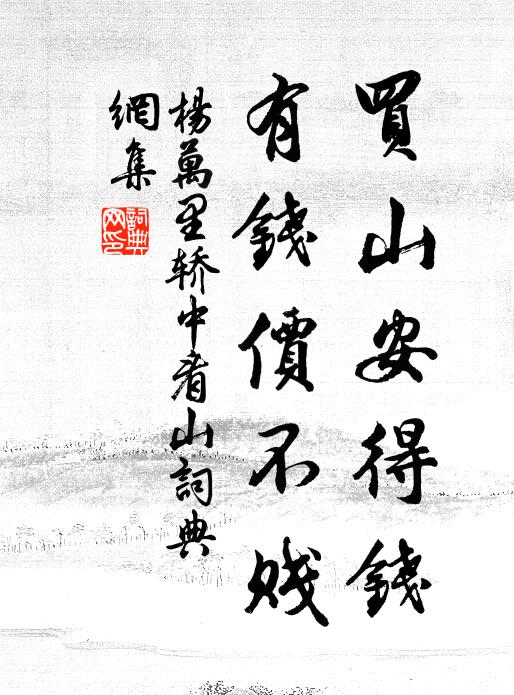 買山安得錢
有錢價不賤
楊萬里轿中看山詞典
網集
詞典網印